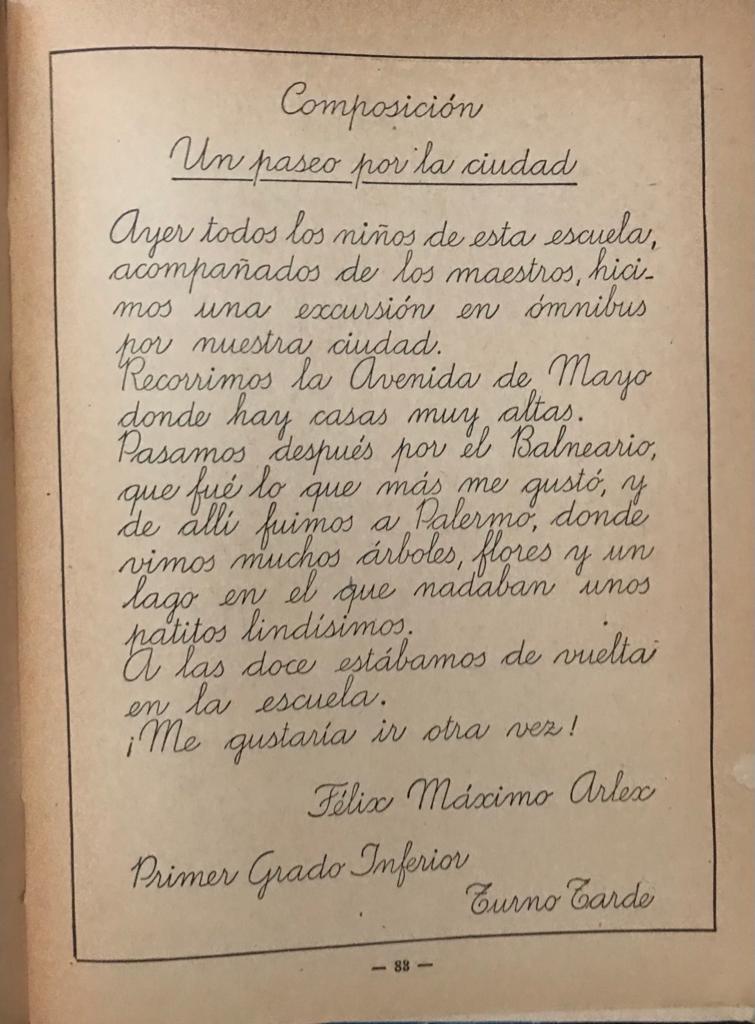 Composición
Un paseo por la ciudad
Ayer todos los niños de esta escuela,
acompañados de los maestros, hici-
mos una excursión en ómnibus
por nuestra ciudad.
Recorrimos la Avenida de Mayo
donde hay casas muy altas.
Pasamos después por el Balneario,
que fué lo que más me gustó, y
de allí fuimos a Palermo, donde
vimos muchos árboles, flores y un
lago en el que nadaban unos
patitos lindísimos.
A las doce estábamos de vuelta
en la escuela.
¡Me gustaría ir otra vez!
Félix Máximo Arlex
Primer Grado Inferior
Turno Tarde
— 88 —